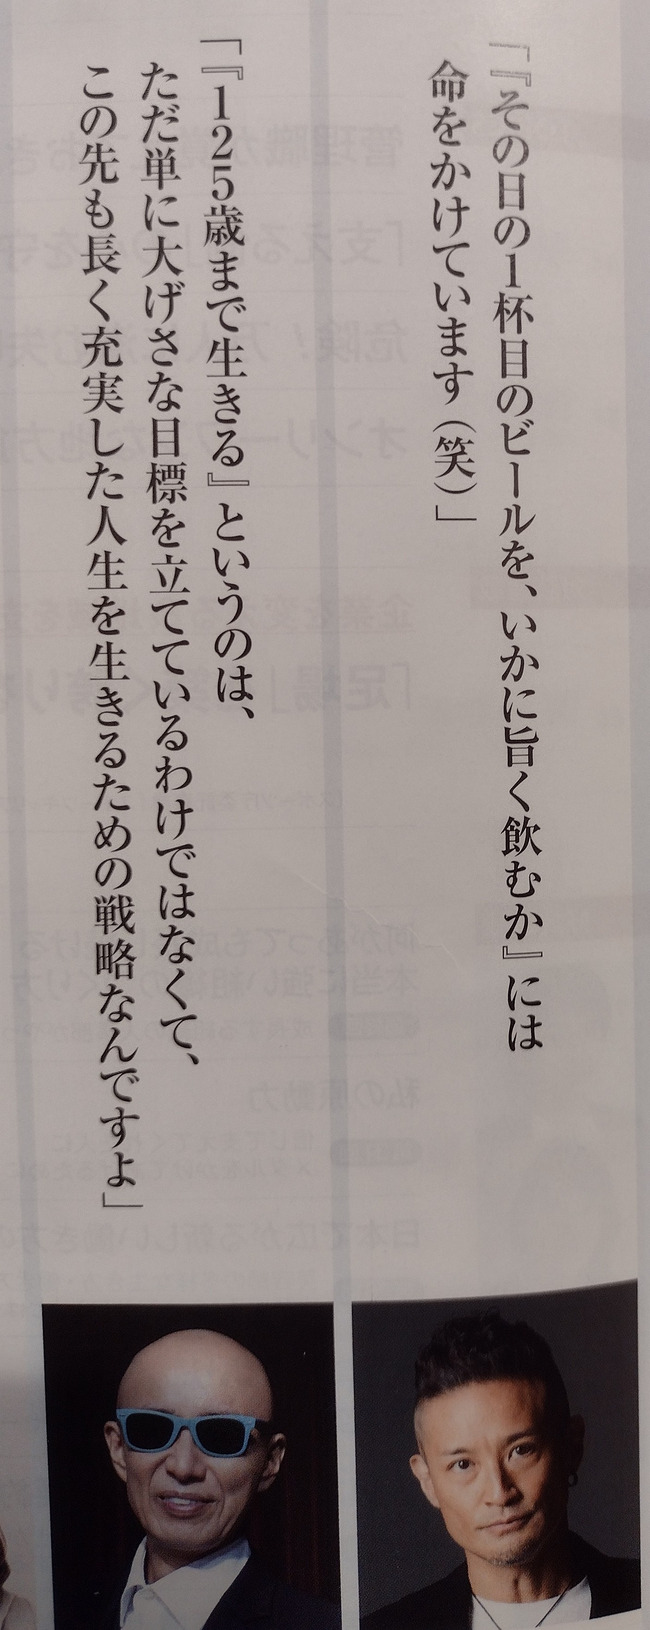 「『その日の1杯目のビールを、いかに旨く飲むか』には
命をかけています（笑）」
「『125歳まで生きる』というのは、
ただ単に大げさな目標を立てているわけではなくて、
この先も長く充実した人生を生きるための戦略なんですよ」